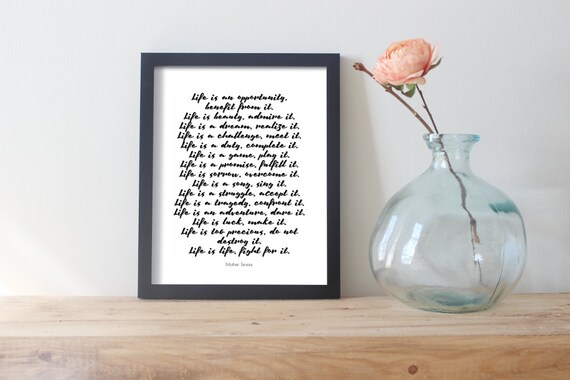 Life is an opportunity,
benefit from it.
Life is beauty, admire it.
Life is a dream, realize it.
Life is a challenge, meet it.
Life is a duty, complete it.
Life is a game, play it.
Life is a promise, fulfill it.
Life is sorrow, overcome it.
Life is a song, sing it.
Life is a struggle, accept it.
Life is a tragedy, confront it.
Life is an adventure, dare it.
Life is luck, make it.
Life is too precious, do not
destroy it.
Life is life, fight for it.
Mother Teresa